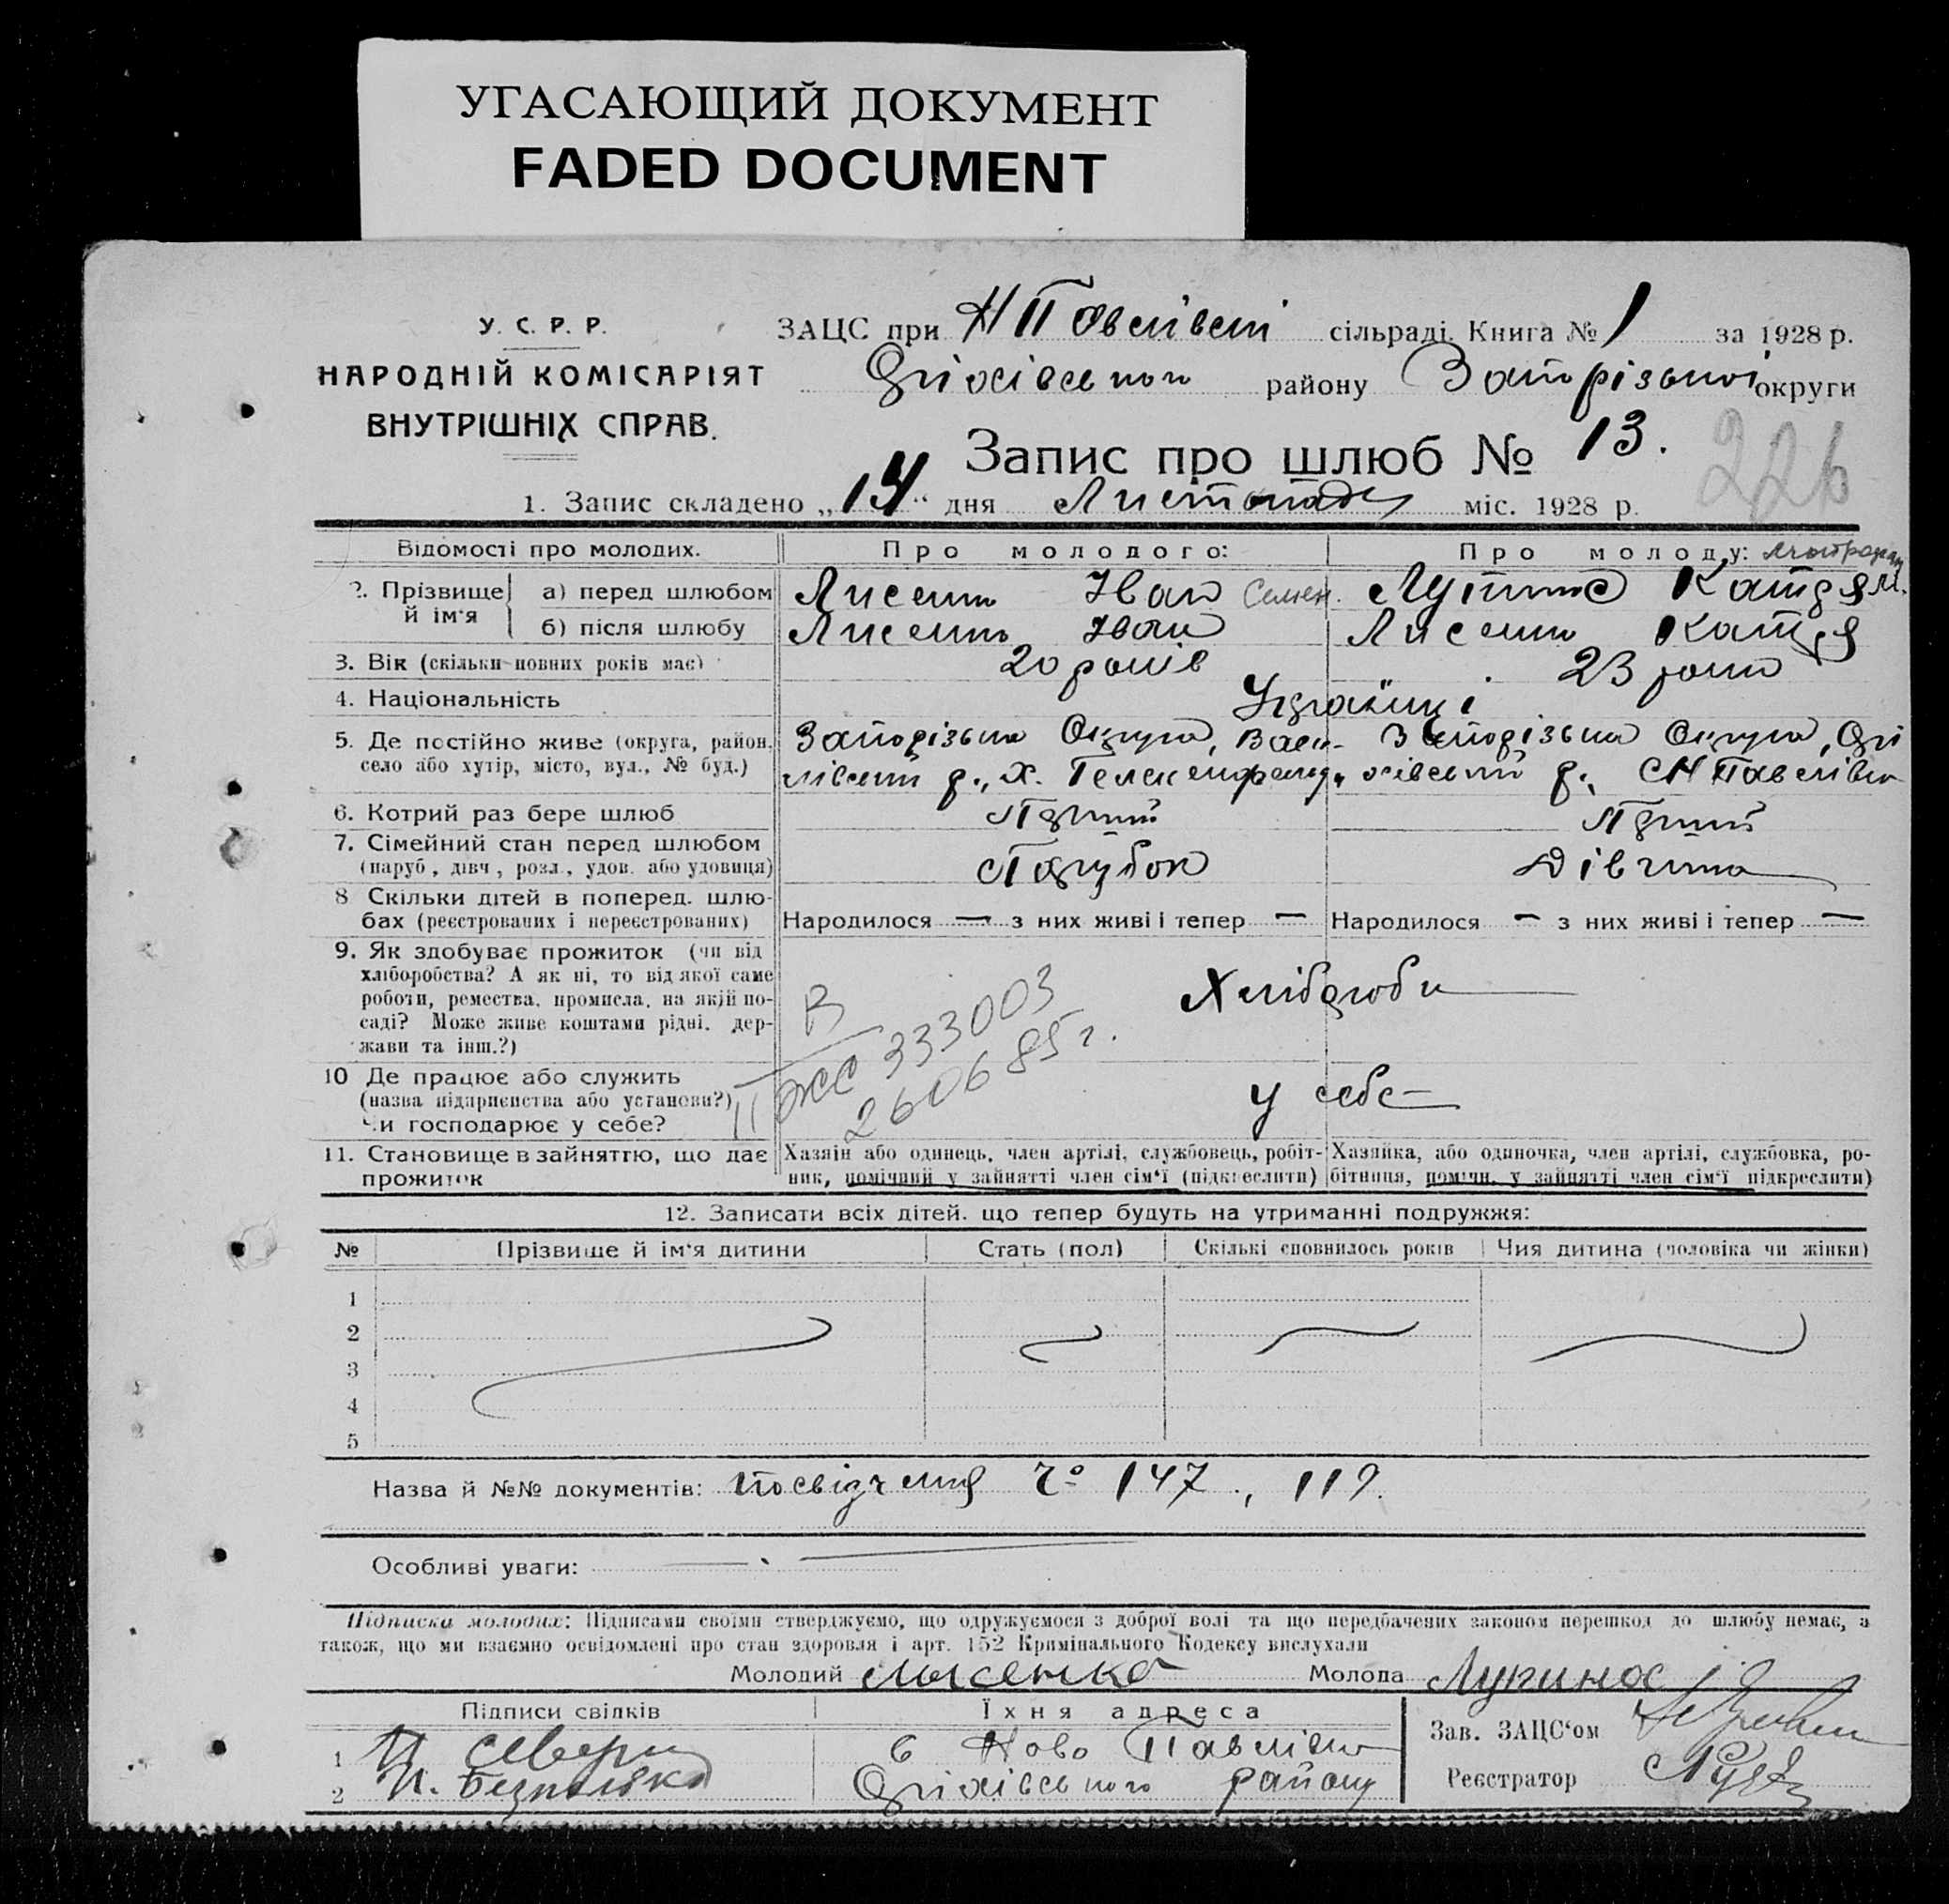 УГАСАЮЩИЙ ДОКУМЕНТ
FADED DOCUMENT
У. С. Р. Р.
НАРОДНІЙ КОМІСАРІЯТ
ВНУТРІШНІХ СПРАВ.
ЗАЦС при Н Павлівській сільраді. Книга № 1 за 1928 р.
Оріхівського району Запорізької округи
Запис про шлюб № 13.
226
1. Запис складено „14“ дня Листопада міс. 1928 р.
Відомості про молодих. Про молодого: Про молоду:
2. Прізвище й ім‘я
а) перед шлюбом Лисенко Іван Семен. Лупинос Катря М.
б) після шлюбу Лисенко Іван Лисенко Катря
3. Вік (скільки повних років має) 20 років 23 роки
4. Національність Українці
5. Де постійно живе (округа, район, село або хутір, місто, вул., № буд.)
Запорізька Округа, Васи-
лівський р., Х.
Запорізька Округа, Орі
хівський р., С Н Павлівка
6. Котрий раз бере шлюб Перший Перший
7. Сімейний стан перед шлюбом Парубок Дівчина
(паруб., дівч., розл., удов. або удовиця)
8 Скільки дітей в поперед. шлю-
бах (реєстрованих і нереєстрованих) Народилося — з них живі і тепер — Народилося — з них живі і тепер —
9. Як здобуває прожиток (чи від
хліборобства? А як ні, то від якої саме
роботи, ремества, промисла, на якій по-
саді? Може живе коштами рідні, дер-
жави та інш.?)
Хлібороби
333003
260685 г.
10 Де працює або служить
(назва підприємства або установи?)
Чи господарює у себе?
у себе
11. Становище в зайняттю, що дає
прожиток
Хазяїн або одинець, член артілі, службовець, робіт-
ник, помічний у зайнятті член сім‘ї (підкреслити)
Хазяйка, або одиночка, член артілі, службовка, ро-
бітниця, помічн. у зайнятті член сім‘ї підкреслити)
12. Записати всіх дітей. що тепер будуть на утриманні подружжя:
№ Прізвище й ім‘я дитини Стать (пол) Скількі сповнилось років Чия дитина (чоловіка чи жінки)
1
2
3
4
5
Назва й №№ документів: Посвідчення Ч° 147, 119.
Особливі уваги:
Підписка молодих: Підписами своїми стверджуємо, що одружуємося з доброї волі та що передбачених законом перешкод до шлюбу немає, а
також, що ми взаємно освідомлені про стан здоровля і арт. 152 Кримінального Кодексу вислухали
Молодий Лысенко Молода Лупинос
Підписи свідків Їхня адреса Зав. ЗАЦС‘ом
1 С Ново Павлівка
2 Оріхівського району Реєстратор